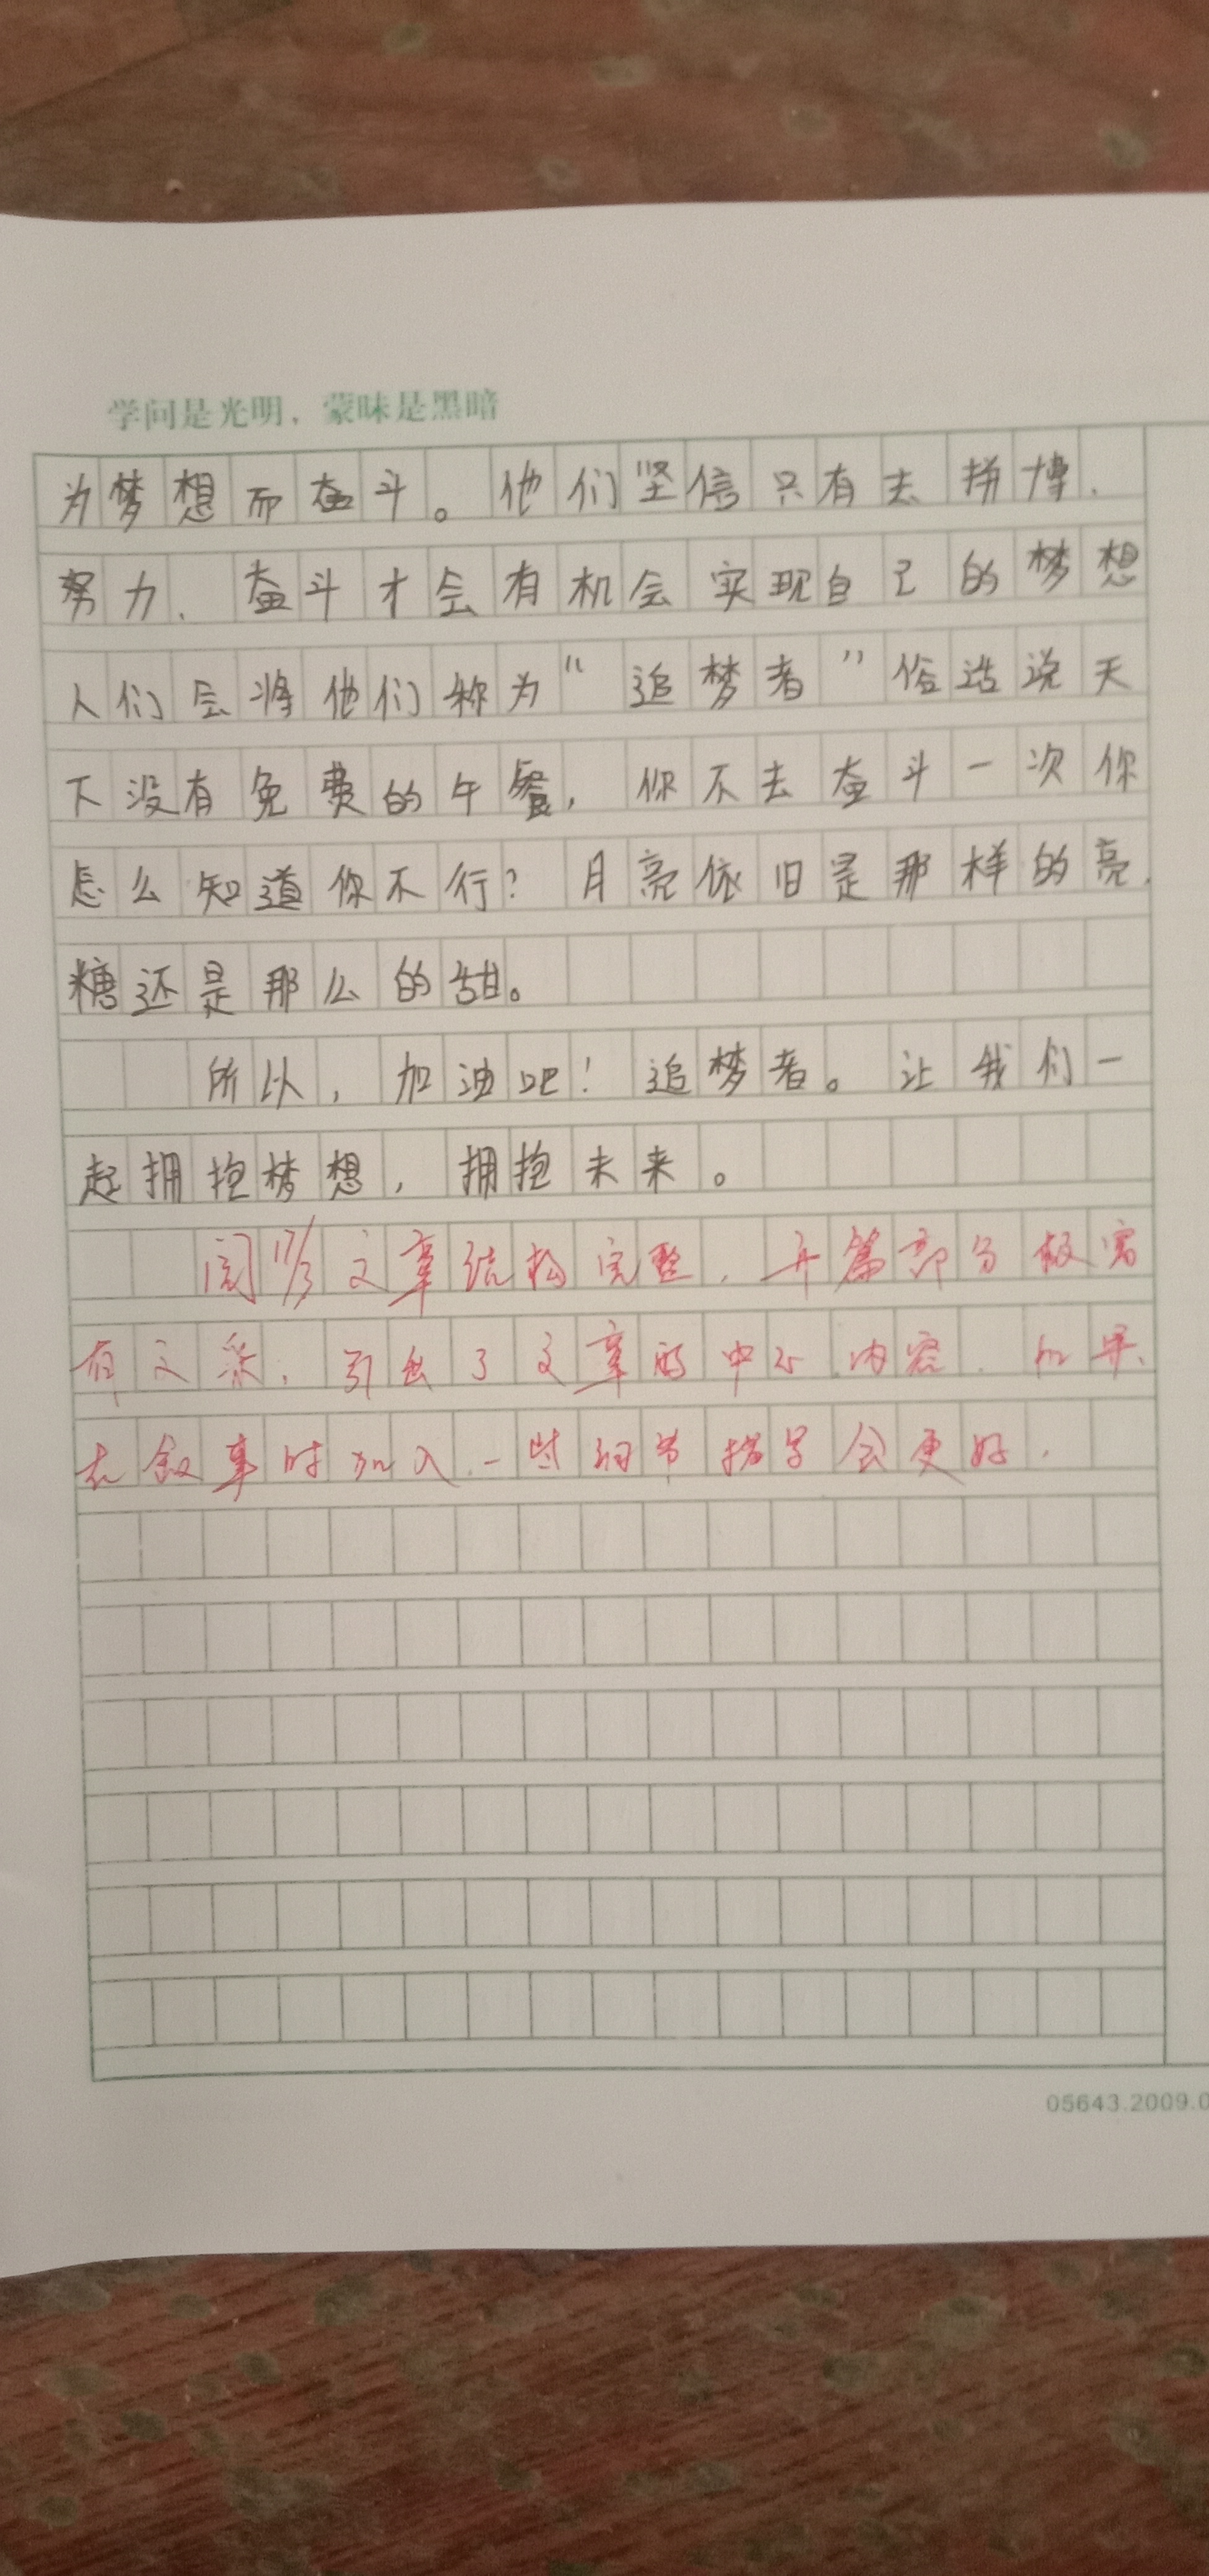 学问是光明，蒙昧是黑暗
为梦想而奋斗。他们坚信只有去拚博、
努力、奋斗才会有机会实现自己的梦想
人们会将他们称为“追梦者”俗话说天
下没有免费的午餐，你不去奋斗一次你
怎么知道你不行？月亮依旧是那样的亮，
糖还是那么的甜。
所以，加油吧！追梦者。让我们一
起拥抱梦想，拥抱未来。
阅17/3 文章结构完整，开篇部分极富
有文采，引出了文章的中心内容．如果
在叙事时加入一些细节描写会更好．
05643.2009.0